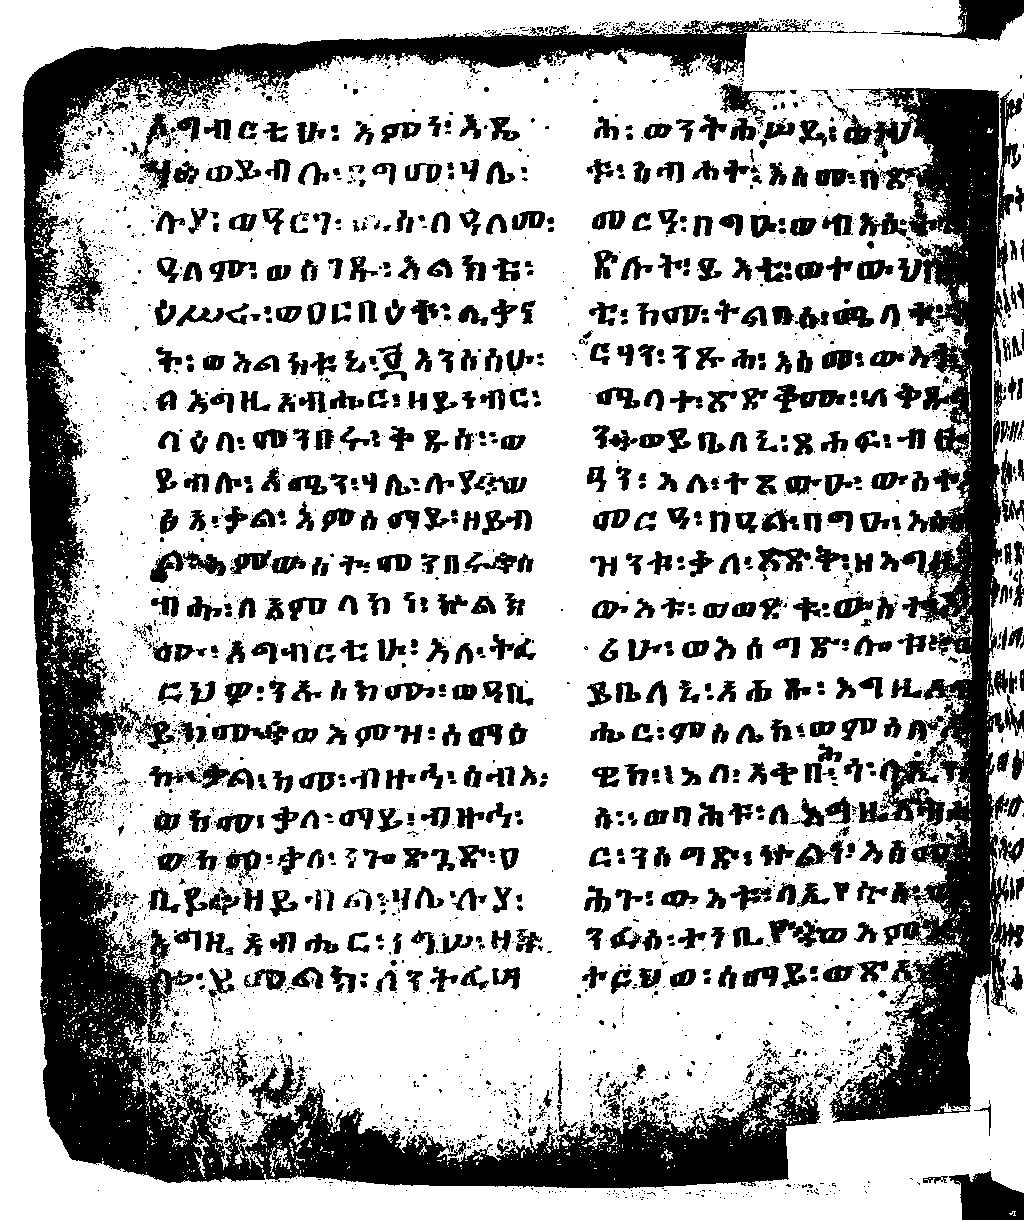 አግብርቲሁ፡ እምን፡ እዴ
ሃ፨ወይብሉ፡ ዳግመ፡ ሃሌ፡
ሉያ፡ ወዓርገ፡ ጢሱ፡ ለዓለመ፡
ዓለም፡ ወሰገዱ፡ እልክቱ፡
ዕሥሩ፡ ወዐርበዕቱ፡ ሊቃና
ት፡ ወእልክቱኒ፡ ፬ እንስሳሁ፡
ለእግዚአብሔር፡ ዘይነብር፡
ላዕለ፡ መንበሩ፡ ቅዱስ፡፡ ወ
ይብሉ፡ አሜን፡ ሃሌ፡ ሉያ፨ወ
ፅአ፡ ቃል፡ እምሰማይ፡ ዘይብ
ል፨እምውስተ፡ መንበሩ፨ሰ
ብሑ፡ ለአምላክነ፡ ኵልክ
ሙ፡ አግብርቲሁ፡ እለ፡ ትፈ
ርህዎ፡ ንኡስክሙ፡ ወዓቢ
ይክሙ፨ወእምዝ፡ ሰማዕ
ኩ፡ ቃለ፡ ከመ፡ ብዙኅ፡ ሰብእ፡
ወከመ፡ ቃለ፡ ማይ፡ ብዙኅ፡
ወከመ፡ ቃለ፡ ነጐድጓድ፡ ዐ
ቢይ፨ዘይብል፡ ሃሌ፡ ሉያ፡
እግዚአብሔር፡ ነግሠ፡ ዘኵ
ሎ፡ ይመልክ፡ ለንትፈሣ
ሕ፡ ወንትሐሠይ፡
ቱ፡ ስብሐት፡ እስመ፡
መርዓ፡ በግዑ፡ ወብእሲቱ
ድሉት፡ ይእቲ፡ ወተውህበ
ቲ፡ ከመ፡ ትልበስ፡ ሜላተ፡
ርሃን፡ ንጹሕ፡ እስመ፡ ውእቱ፡
ሜላተ፡ ጽድቆሙ፡ ለቅዱሳ
ን፨ወይቤለኒ፡ ጸሐፍ፡ ብፁ
ዓን፡ እለ፡ ተጸውዑ፡ ውስተ፡
መርዓ፡ በዓሉ፡ በግዑ፡ እስመ
ዝንቱ፡ ቃለ፡ ጽድቅ፡ ዘእግዚ
ውእቱ፡ ወወደቁ፡ ውስተ፡
ሪሁ፡ ወእሰግድ፡ ሎቱ፨ወ
ይቤለኒ፡ እግዚአብ
ሔር፡ ምስሌከ፡ ወምስለ፡
ዊከ፡ እለ፡
ስ፡ ወባሕቱ፡ ለእግዚአብሔ
ር፡ ንሰግድ፡ ኵልነ፡ እስመ፡
ሕጉ፡ ውእቱ፡ ለኢየሱስ፡
ንፉስ፡ ተነቢዮ፨ወእምዝ
ተርህወ፡ ሰማይ፡ ወጽአ